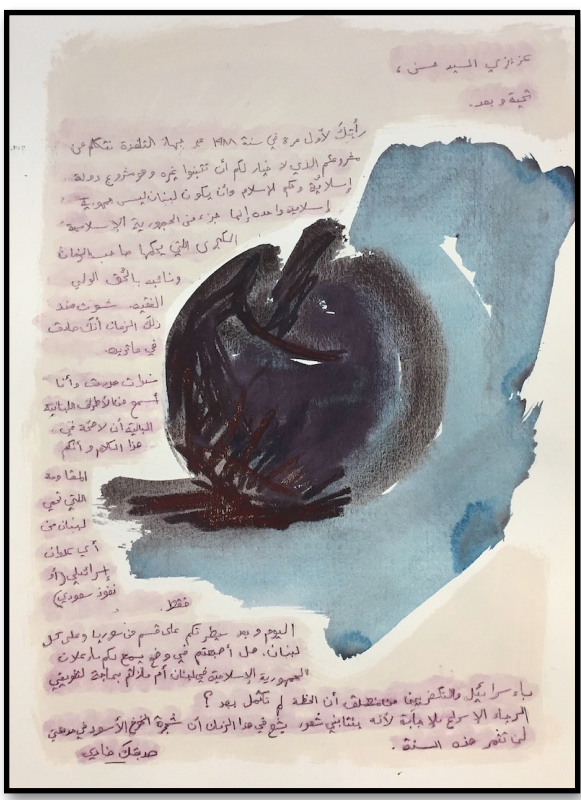 عزيزي السيد حسن،
تحية وبعد.
رأيتك لأول مرة في سنة ١٩٨٨ عبر جهاز التلفزة تتكلم عن
مشروعكم الذي لا خيار لكم أن تتبنوا غيره وهو مشروع دولة
إسلامية وحكم الإسلام وأن يكون لبنان ليس جمهورية
إسلامية واحدة إنما جزء من الجمهورية الإسلامية
الكبرى التي يحكمها صاحب الزمان
ونائبه بالحق الولي
الفقيه. شعرت منذ
ذلك الزمان أنك صادق
في
سنوات مرت وأنا
أسمع من الأطراف اللبنانية
أن لا صحة في
هذا الكلام وأنكم
المقاومة
التي تحمي
لبنان من
أي عدوان
إسرائيلي (أو
نفوذ سعودي)
فقط.
اليوم و بعد سيطرتكم على قسم من سوريا وعلى كل
لبنان. هل أصبحتم في وضع يسمح لكم بإعلان
الجمهورية الإسلامية في لبنان أم مازلتم بحاجة لتخويفي
بإسرائيل والتكفيريين من منطلق أن الخطة لم تكتمل بعد ؟
الرجاء الإسراع بالإجابة لأنه ينتابني شعور في هذا الزمان أن شجرة الخوخ الأسود في
لن تثمر هذه السنة.
صديقك